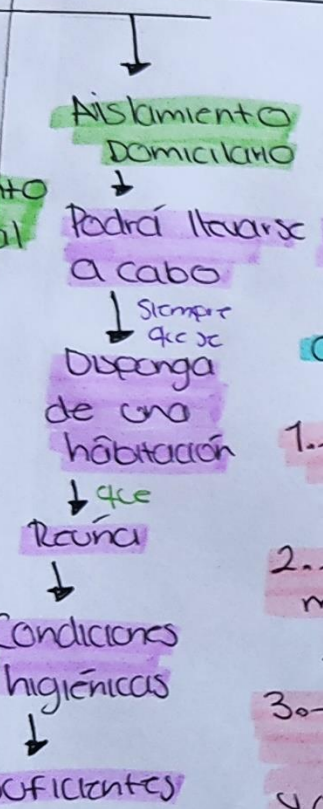 Aislamiento
Domiciliario
Podrá llevarse
a cabo
Siempre
que se
Disponga
de una
habitación
que
Reúna
Condiciones
higiénicas
suficientes
1.-
2.-
3.-